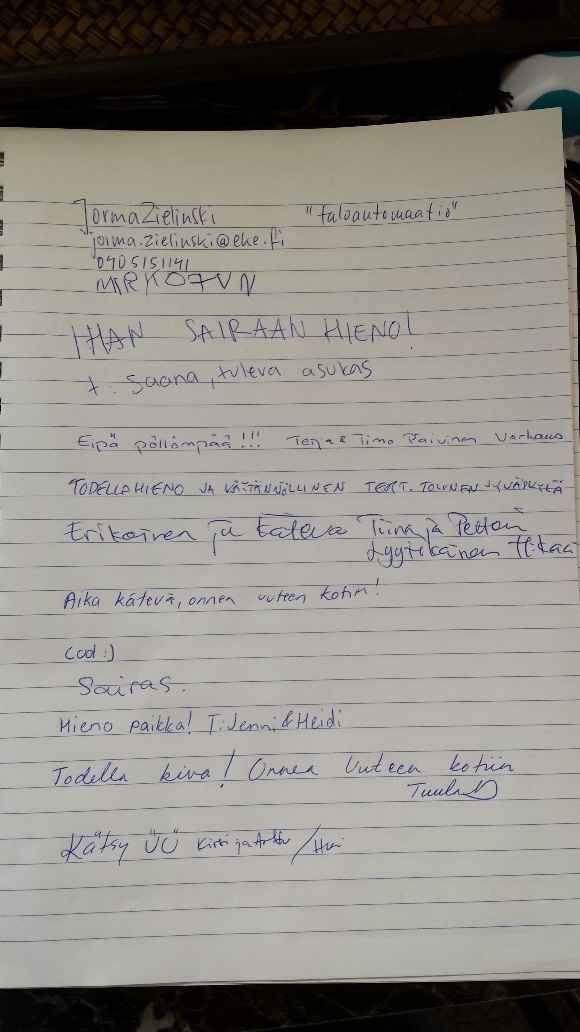 Jorma Zielinski "taloautomaatio"
jorma.zielinski@eke.fi
0405151141
IHAN SAIRAAN HIENO!
t. Saana, tuleva asukas
Eipä pöllömpää!!! Terja & Timo Päivinen Varkaus
TODELLA HIENO JA KÄYTÄNNÖLLINEN TERT. TOLONEN JYVÄSKYLÄ
Erikoinen ja kätevä Tiina ja Petteri
Lyytikäinen
Aika kätevä, onnea uuteen kotiin!
Cool :)
Sairas.
Hieno paikka! T: Jenni & Heidi
Todella kiva! Onnea Uuteen kotiin
Tuula
Kätsy Kirsi ja Arttu